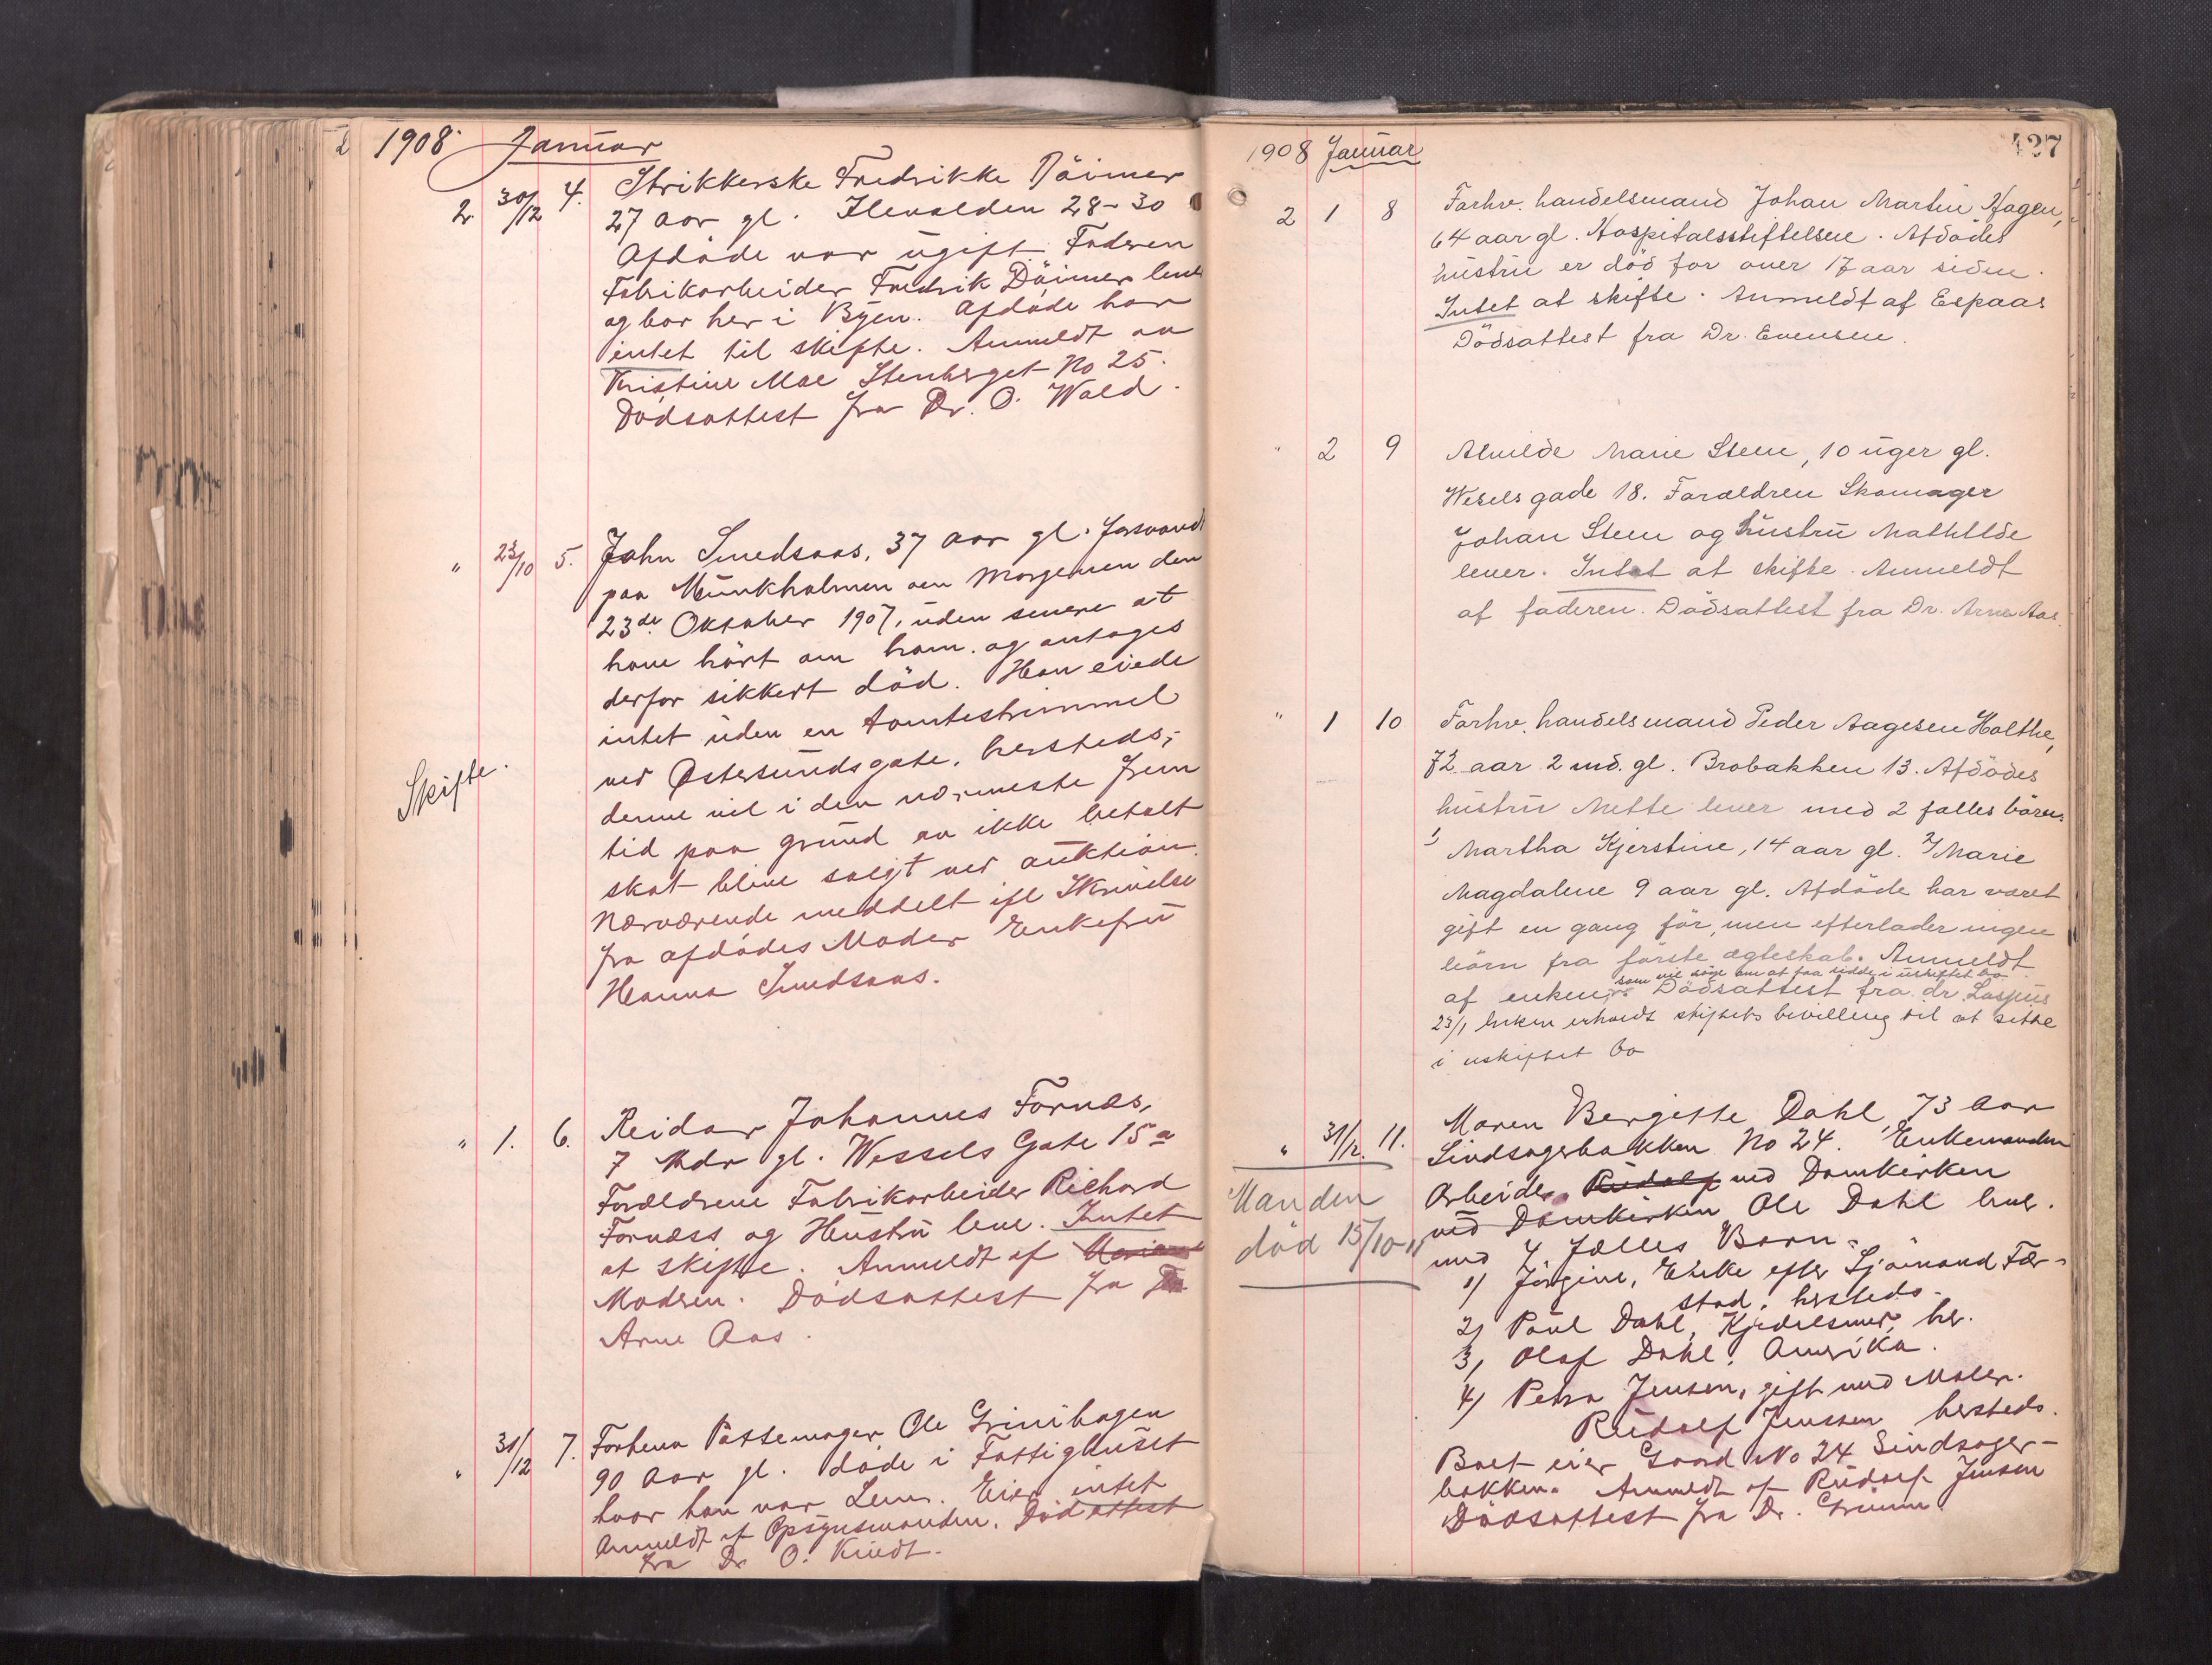 1908 Januar
2. 30/12 4. Strikkerske Fredrikke Döimer
27 aar gl. Ilevolden 28-30
Afdøde var ugift. Faderen
Fabrikarbeider Fredrik Döimer lever
og bor her i Byen. Afdøde har
intet til skifte. Anmeldt av
Kristine Moe Stenberget No 25.
Dødsattest fra Dr. O. Wold.
Skifte.
" 23/10 5. John Smedsaas, 37 aar gl. forsvandt
paa Munkholmen om Morgenen den
23de Oktober 1907, uden senere at
have hört om ham. og antages
derfor sikkert död. Han eiede
intet uden en tomtestrimmel
ved Østersundsgate, hersteds,
denne vil i den nærmeste frem
tid paa grund av ikke betalt
skat blive solgt ved auktion.
Nærværende meddelt ifl Skrivelse
fra afdødes Moder Enkefru
Hanna Smedsaas.
" 1. 6. Reidar Johannes Fornæs,
7 Mdr gl. Wessels Gate 15a
Forældrene Fabrikarbeider Richard
Fornæss og Hustru lever. Intet
at skifte. Anmeldt af
Moderen. Dødsattest fra Dr
Arne Aas.
" 31/12 7. Forhenv Pottemager Ole Grinihagen
90 Aar gl. døde i Fattighuset
hvor han var Lem. Eier intet
Anmeldt af Opsynsmanden. Dødattest
fra Dr O. Kindt.
427
1908 Januar
2 1 8 Forhv. handelsmand Johan Martin Hagen,
64 aar gl. Hospitalsstiftelsen. Afdødes
hustru er död for over 17 aar siden.
Intet at skifte. Anmeldt af Espaas
Dödsattest fra Dr. Evensen.
" 2 9 Alvilde Marie Steen, 10 uger gl.
Wesels gade 18. Forældren Skomager
Johan Steen og hustru Mathilde
lever. Intet at skifte. Anmeldt
af faderen. Dödsattest fra Dr. Arne Aas.
" 1 10 Forhv. handelsmand Peder Aagesen Holthe,
72 aar 2 md. gl. Brobakken 13. Afdödes
hustru Mette lever med 2 fælles börn.
1) Martha Kjerstine, 14 aar gl. 2) Marie
Magdalene 9 aar gl. Afdöde har været
gift en gang för, men efterlader ingen
börn fra förste ægteskab. Anmeldt
som vil söge om at faa sidde i uskiftet bo
af enken, Dödsattest fra dr. Laspus
23/1 Enken erholdt skiftets bevilling til at sitte
i uskiftet bo
" 31/12. 11. Maren Bergitte Dahl, 73 Aar
Sindsagerbakken No 24. Enkemanden
Arbeider Rudolf ved Domkirken
ved Domkirken Ole Dahl lever.
Manden
död 15/10-11
med 4 Fælles Børn.
1) Jörgine, Enke efter Sjömand Fær-
stad, hersteds.
2) Paul Dahl, Kjedelsmed, her.
3) Olaf Dahl, Amerika.
4) Petra Jensen, gift med Maler.
Rudolf Jenssen hersteds.
Boet eier Gaard No 24 Sindsager-
bakken. Anmeldt af Rudolf Jensen
Dødsattest fra Dr. Grimm.